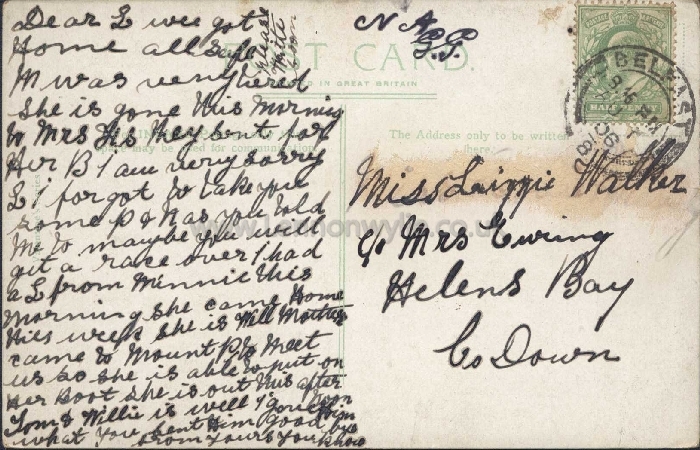 Dear L we got
Home all safe
M was very tired
she is gone this morning
to Mrs they sent for
Her B I am very sorry
L I forgot to take you
some P & N as you told
Me to maybe you will
git a race over I had
a L from Minnie this
morning she came Home
this week she is well Mother
came to Mount P to Meet
us so she is able to put on
Her Boot she is out this after
noon
Tom & Willie is well I gave Him
what you sent Him good bye
from yours you know
Please
Write
soon
N A
P.P.
POST CARD.
IN GREAT BRITAIN
may be used for communication.
The Address only to be written
here.
POSTAGE
HALFPENNY
BELFAST
Miss Lizzie Walker
c/o Mrs Ewing
Helens Bay
Co Down
www.lennonwylie.co.uk